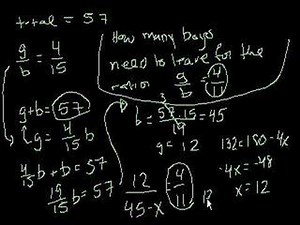 total = 57
g/b = 4/15
How many boys
need to leave for the
ration g/b = 4/11
g+b = 57
g = 4/15 b
b = 57·15/19 = 45
3
g = 12
4/15 b + b = 57
19/15 b = 57
12/45-x = 4/11 =
12
132 = 180 - 4x
-4x = -48
x = 12